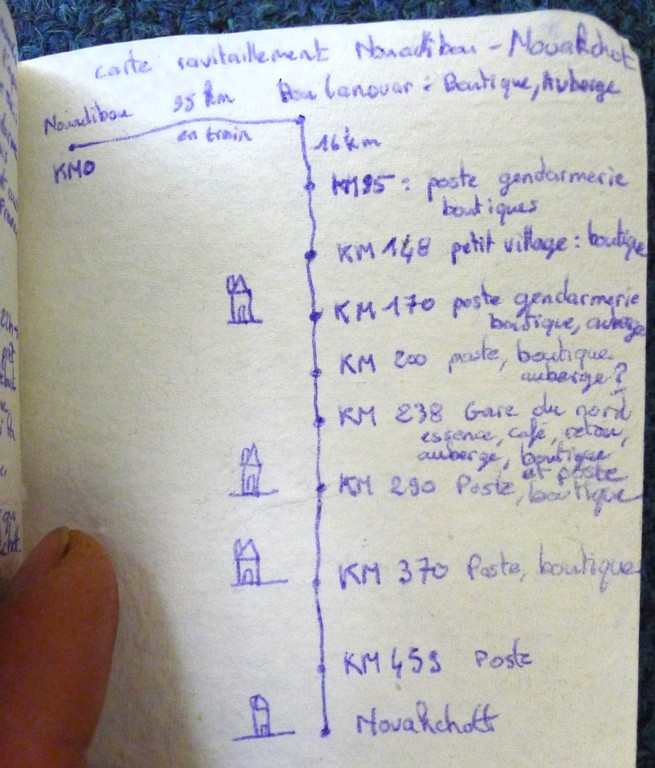 carte ravitaillement Nouadibou - Nouakchot
Nouadibou 95 km Bou lanouar : Boutique, Auberge
en train
KM0
16km
KM95 : poste gendarmerie
boutiques
KM 148 petit village : boutique
KM 170 poste gendarmerie
boutique, auberge
KM 200 poste, boutique
auberge ?
KM 238 Gare du nord
essence, café,
auberge, boutique
et poste
KM 290 Poste, boutique
KM 370 Poste, boutique
KM 459 Poste
Nouakchott